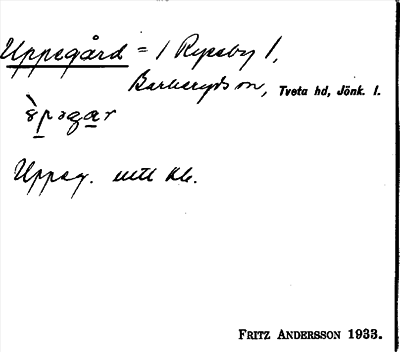 Uppegård = / Ryssby 1,
Barkeryds sn, Tveta hd, Jönk. l.
Uppeg. utt kb.
FRITZ ANDERSSON 1933.